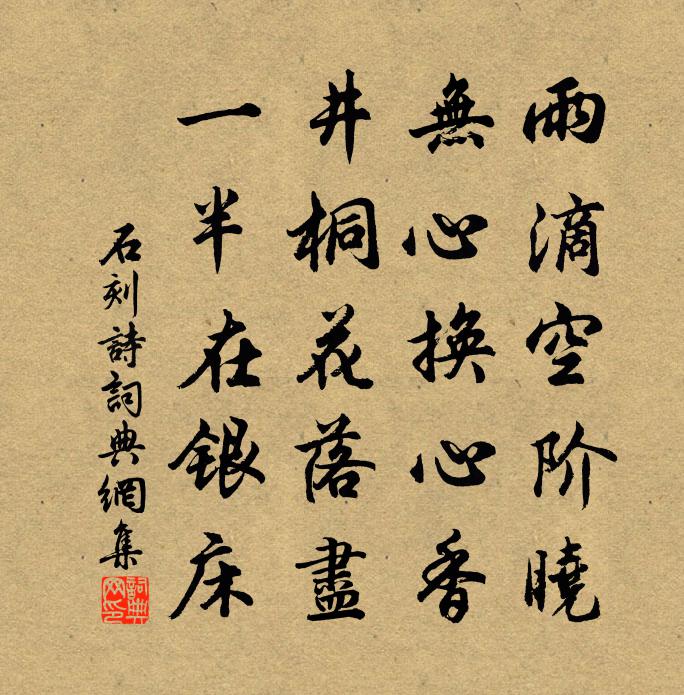 雨滴空阶曉
無心换心香
井桐花落盡
一半在銀床
石刻詩詞典網集
詞典网印